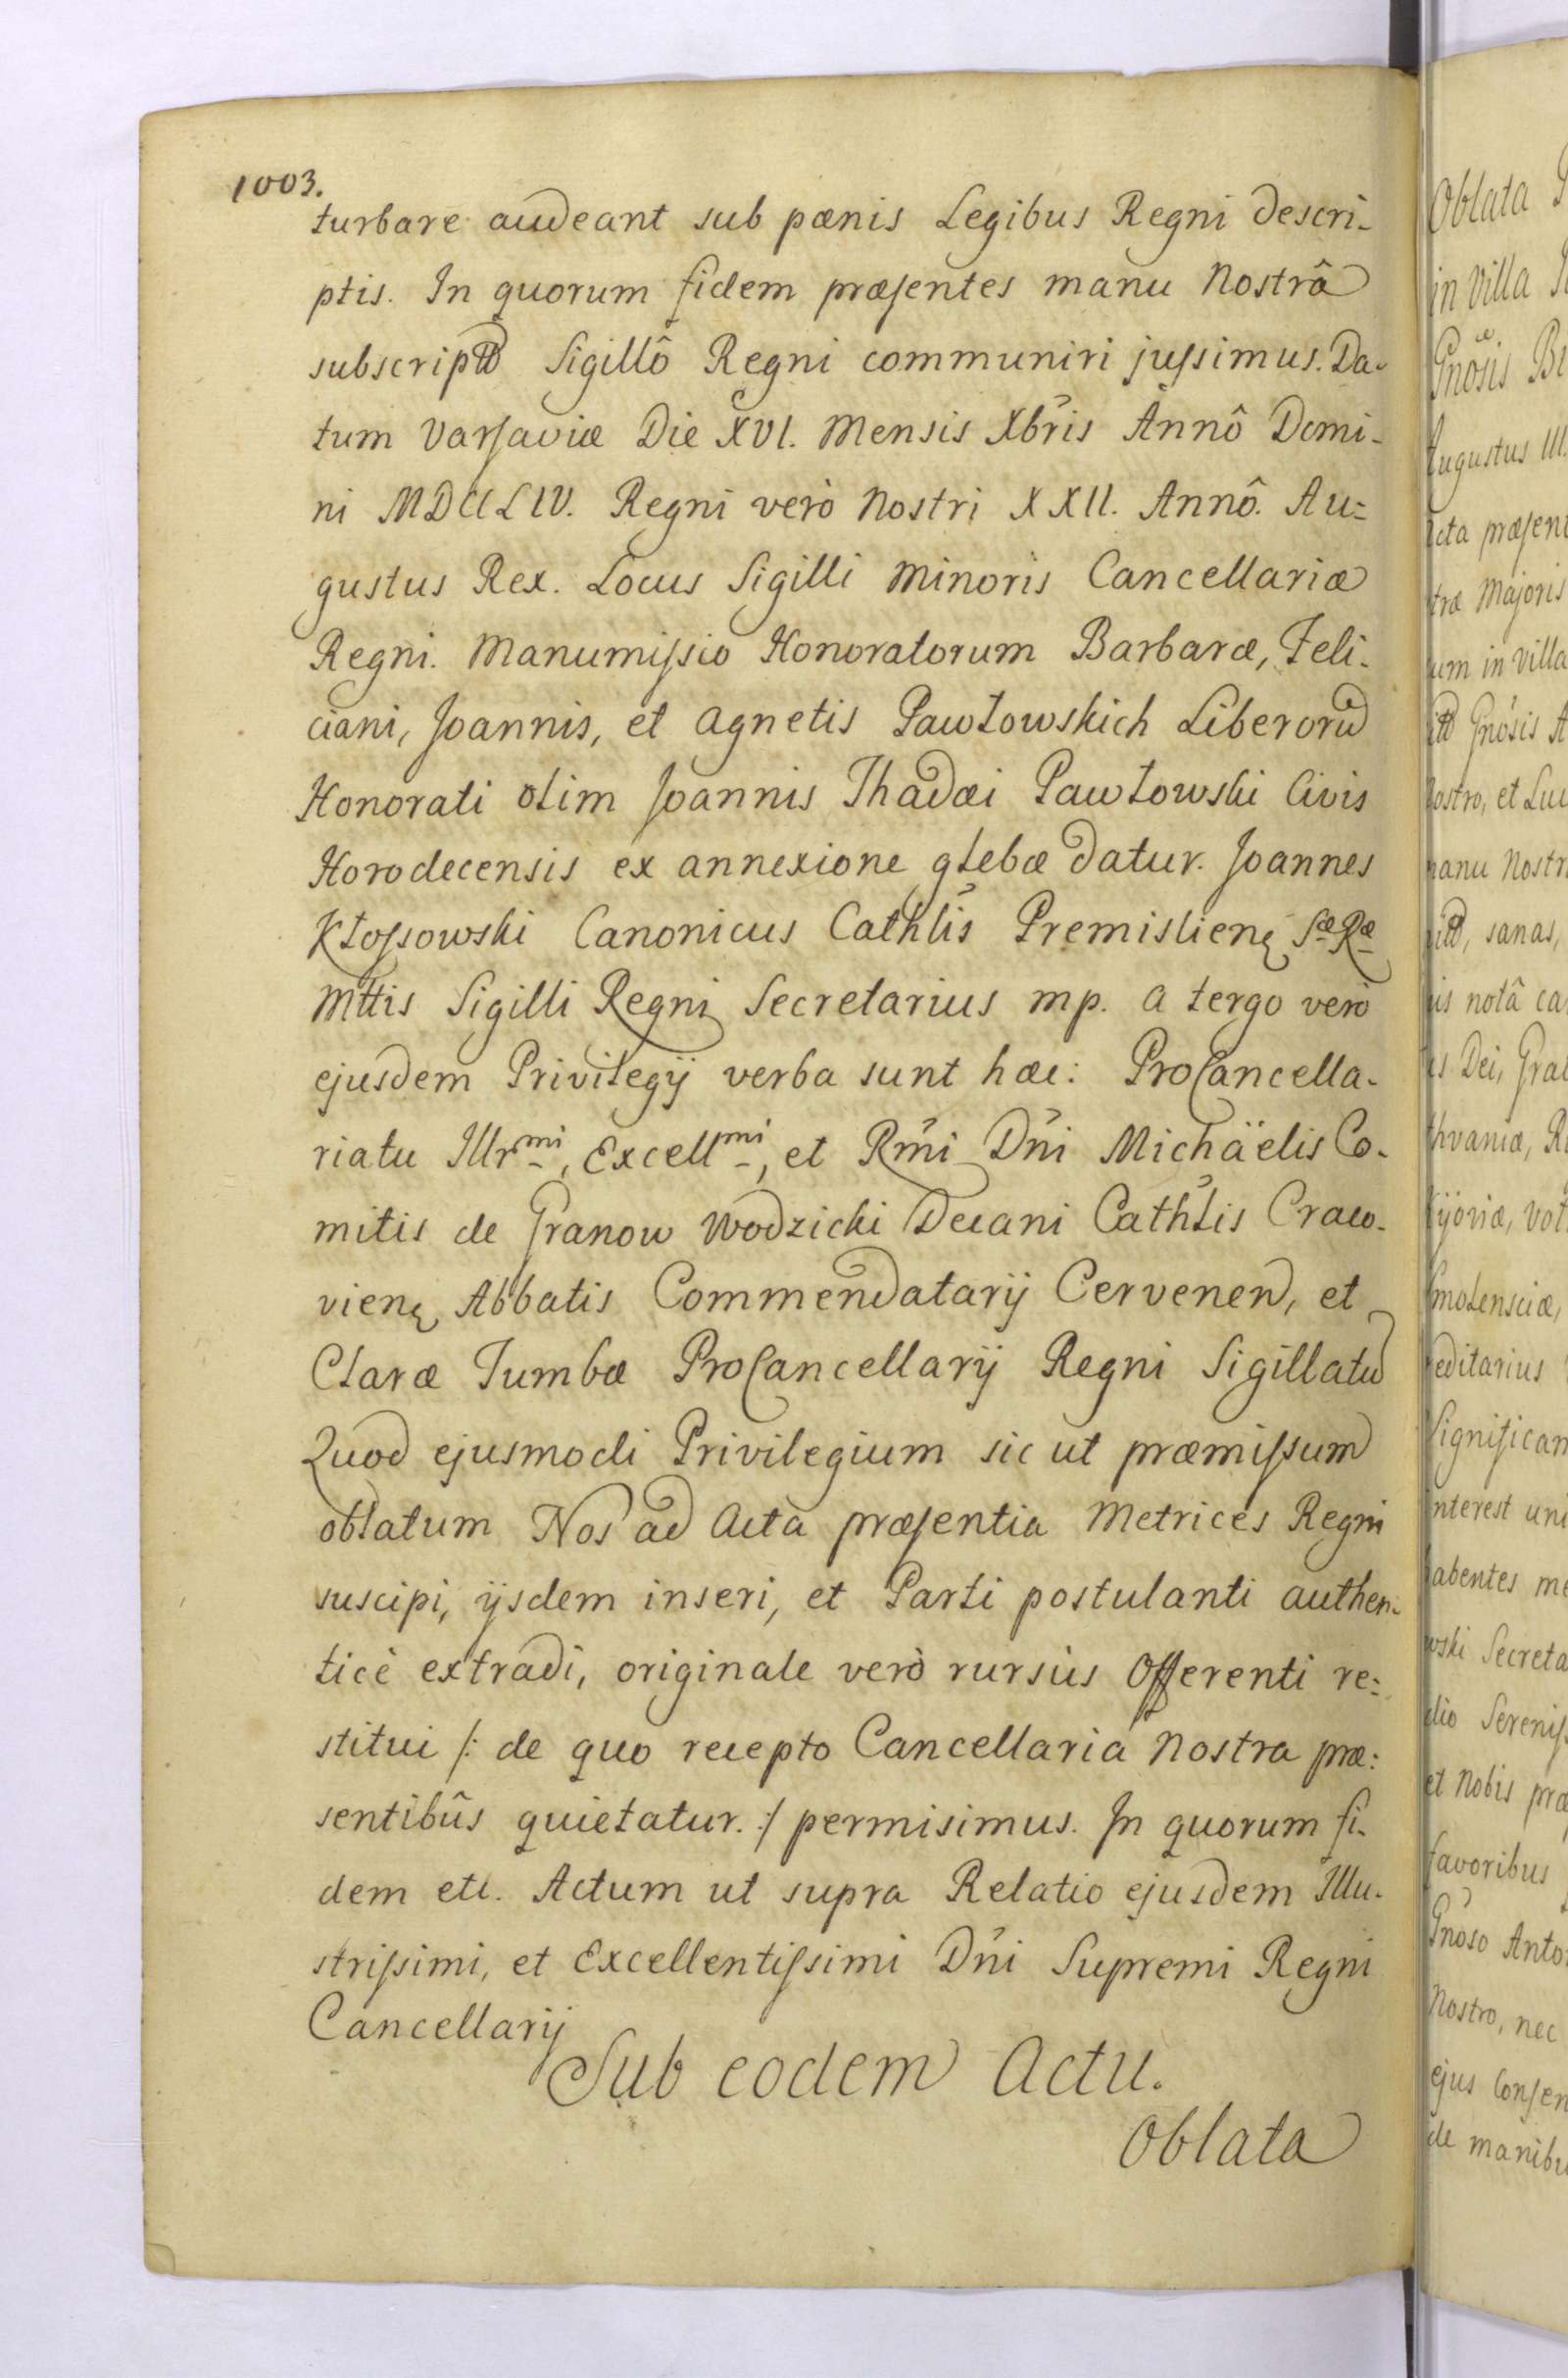 1003.
turbare audeant sub pœnis Legibus Regni descri-
ptis. In quorum fidem præsentes manu Nostrâ
subscriptas Sigillô Regni communiri jussimus. Da-
tum Varsaviæ Die XVI. Mensis Xbris Annô Domi-
ni MDCCLIV. Regni verò Nostri XXII. Annô. Au=
gustus Rex. Locus Sigilli Minoris Cancellariæ
Regni. Manumissio Honoratorum Barbaræ, Feli-
ciani, Joannis, et Agnetis Pawłowskich Liberorũ
Honorati olim Joannis Thadæi Pawłowski Civis
Horodecensis ex annexione glebæ datur. Joannes
Kłossowski Canonicus Cathlis Premislienę Sæ Ræ
Mttis Sigilli Regni Secretarius mp. A tergo verò
ejusdem Privilegij verba sunt hæc: ProCancella-
riatu Illrmi, Excellmi, et Rmi Dni Michäelis Co-
mitis de Granow Wodzicki Decani Cathlis Craco-
vienę Abbatis Commendatarij Cervenen, et
Claræ Tumbæ ProCancellarij Regni Sigillatũ
Quod ejusmodi Privilegium sic ut præmissum
oblatum Nos ad Acta præsentia Metrices Regni
suscipi, ijsdem inseri, et Parti postulanti authen-
ticè extradi, originale verò rursùs Offerenti re=
stitui /: de quo recepto Cancellaria Nostra præ:
sentibûs quietatur. :/ permisimus. In quorum fi-
dem etc. Actum ut supra Relatio ejusdem Illu-
strissimi, et Excellentissimi Dni Supremi Regni
Cancellarij
Sub eodem Actu.
Oblata
Oblata
in Villa
Gnosis
Augustus III.
Acta
træ Majoris
um in Villa
Gnosis
Nostro, et
manu Nostr
sanas,
is notâ ca
s Dei, Gra
thvaniæ,
Kijoviæ,
Smolensciæ,
reditarius
Significan
interest uni
habentes me
wski Secreta
lio Sereniss
et Nobis præ
favoribus
Gnoso Anto
Nostro, nec
ejus Consen
de manibu